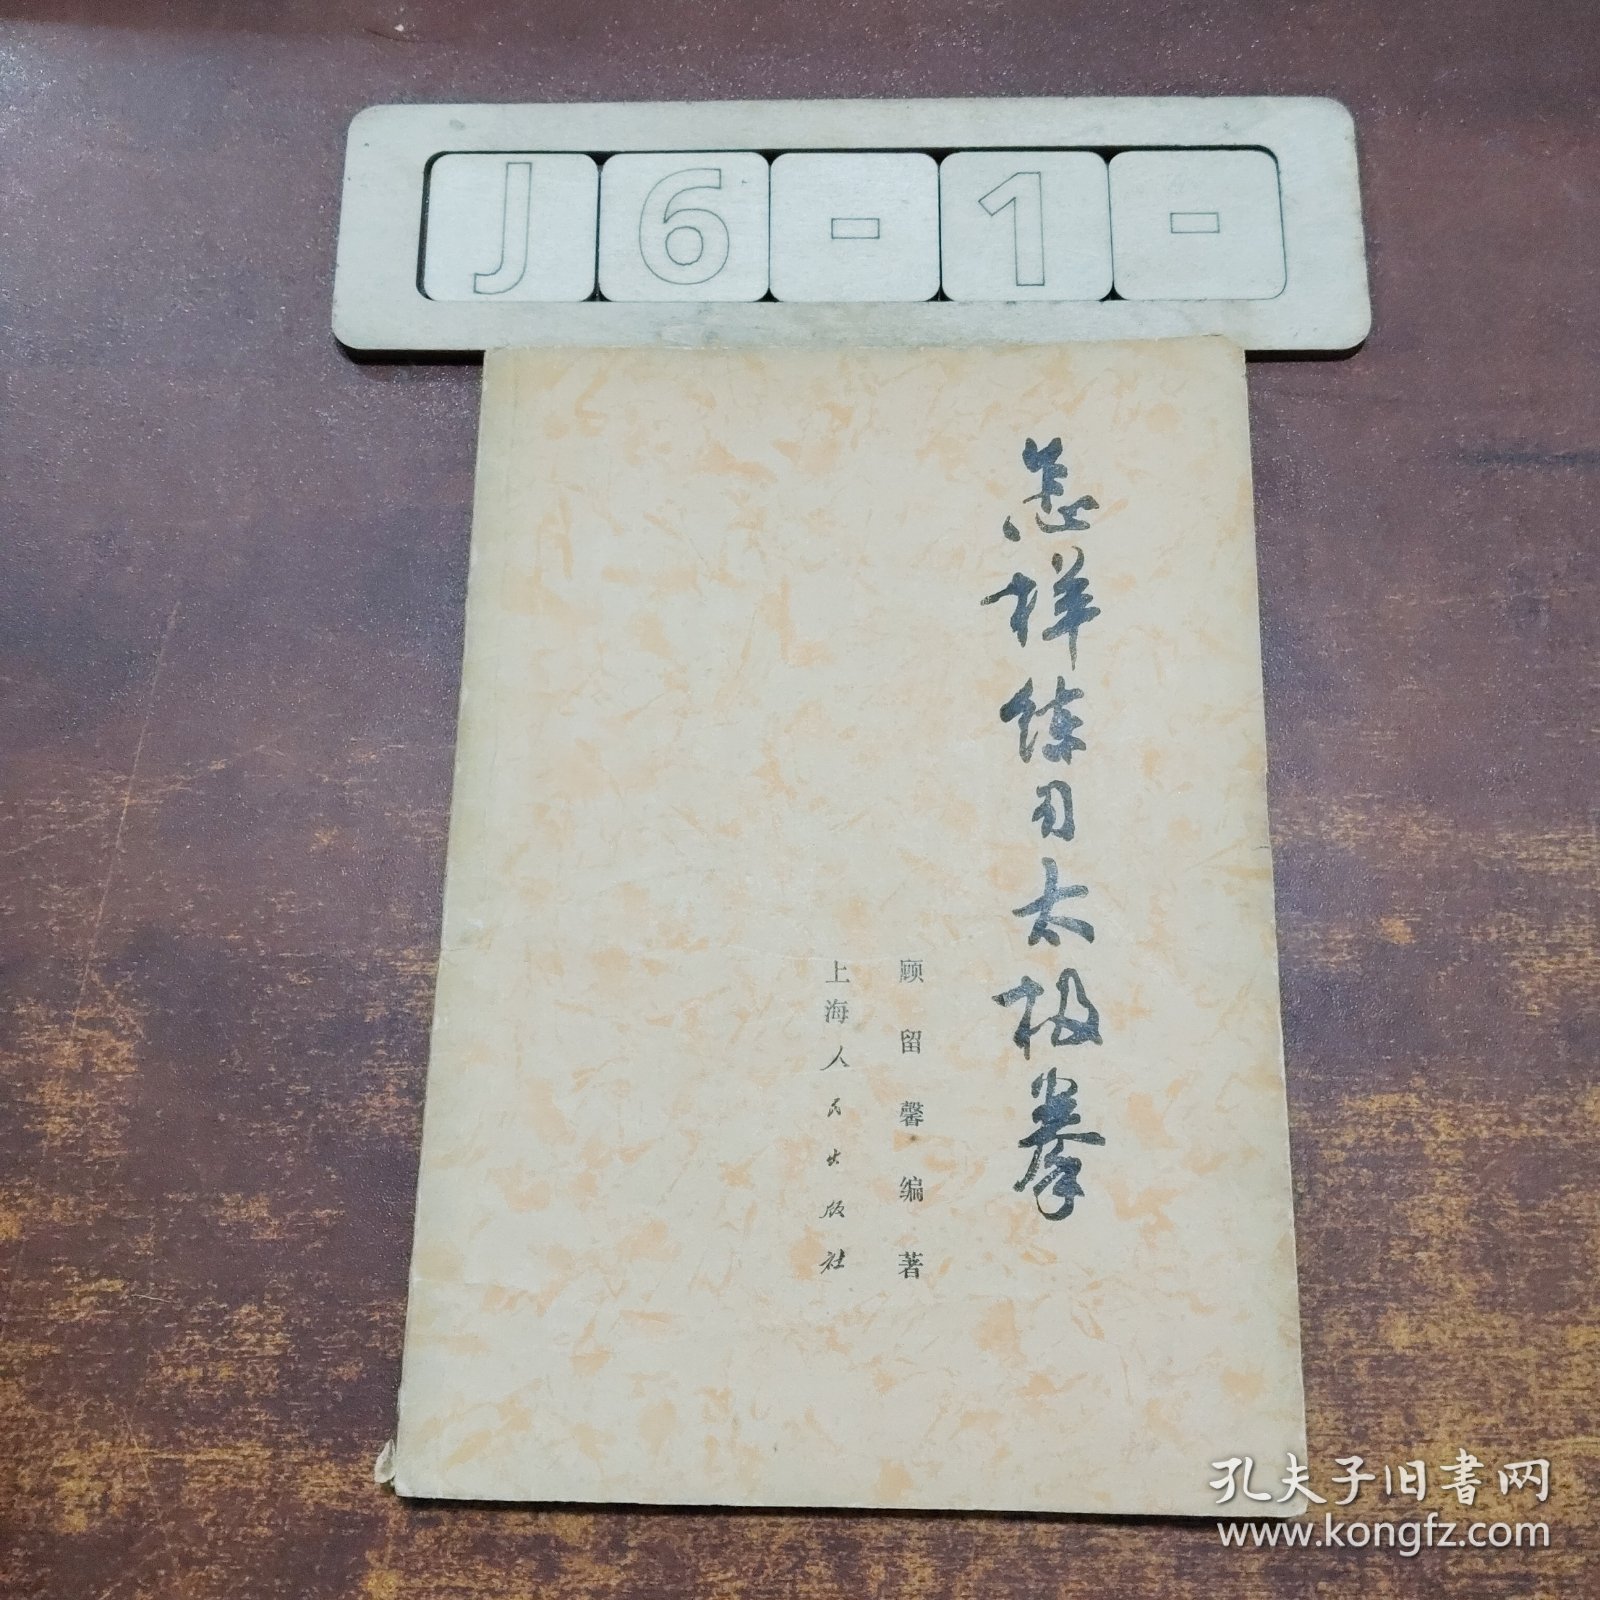 J6-1-
怎样练习太极拳
顾留馨编著
上海人民出版社
孔夫子旧书网
www.kongfz.com